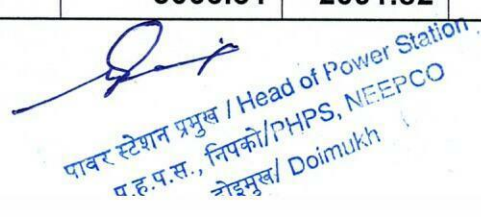 पावर स्टेशन प्रमुख / Head of Power Station
प.ह.प.स., निपको/PHPS, NEEPCO
दोइमुख/ Doimukh